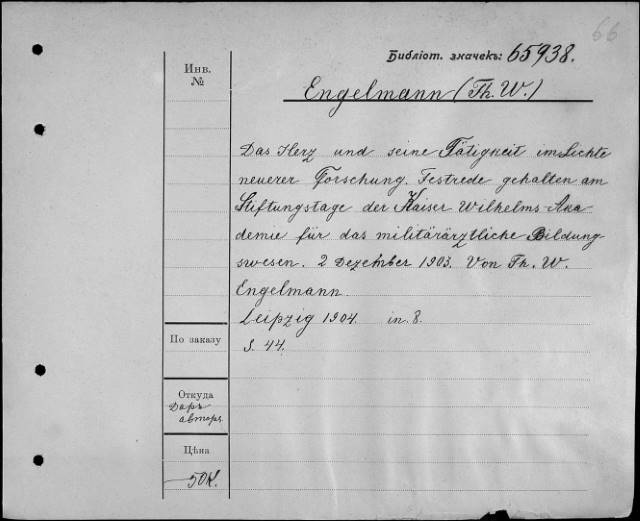 66
Библіот. значекъ: 65938.
Инв.
№
Engelmann (Th. W.)
Das Herz und seine Tätigkeit im Lichte
neuerer Forschung. Festrede gehalten am
Stiftungstage der Kaiser Wilhelms-Aka
demie für das militärärztliche Bildung
swesen. 2 Dezember 1903. Von Th. W.
Engelmann
Leipzig 1904. in 8.
По заказу
S. 44.
Откуда
Даръ
автора.
Цѣна
50 к.